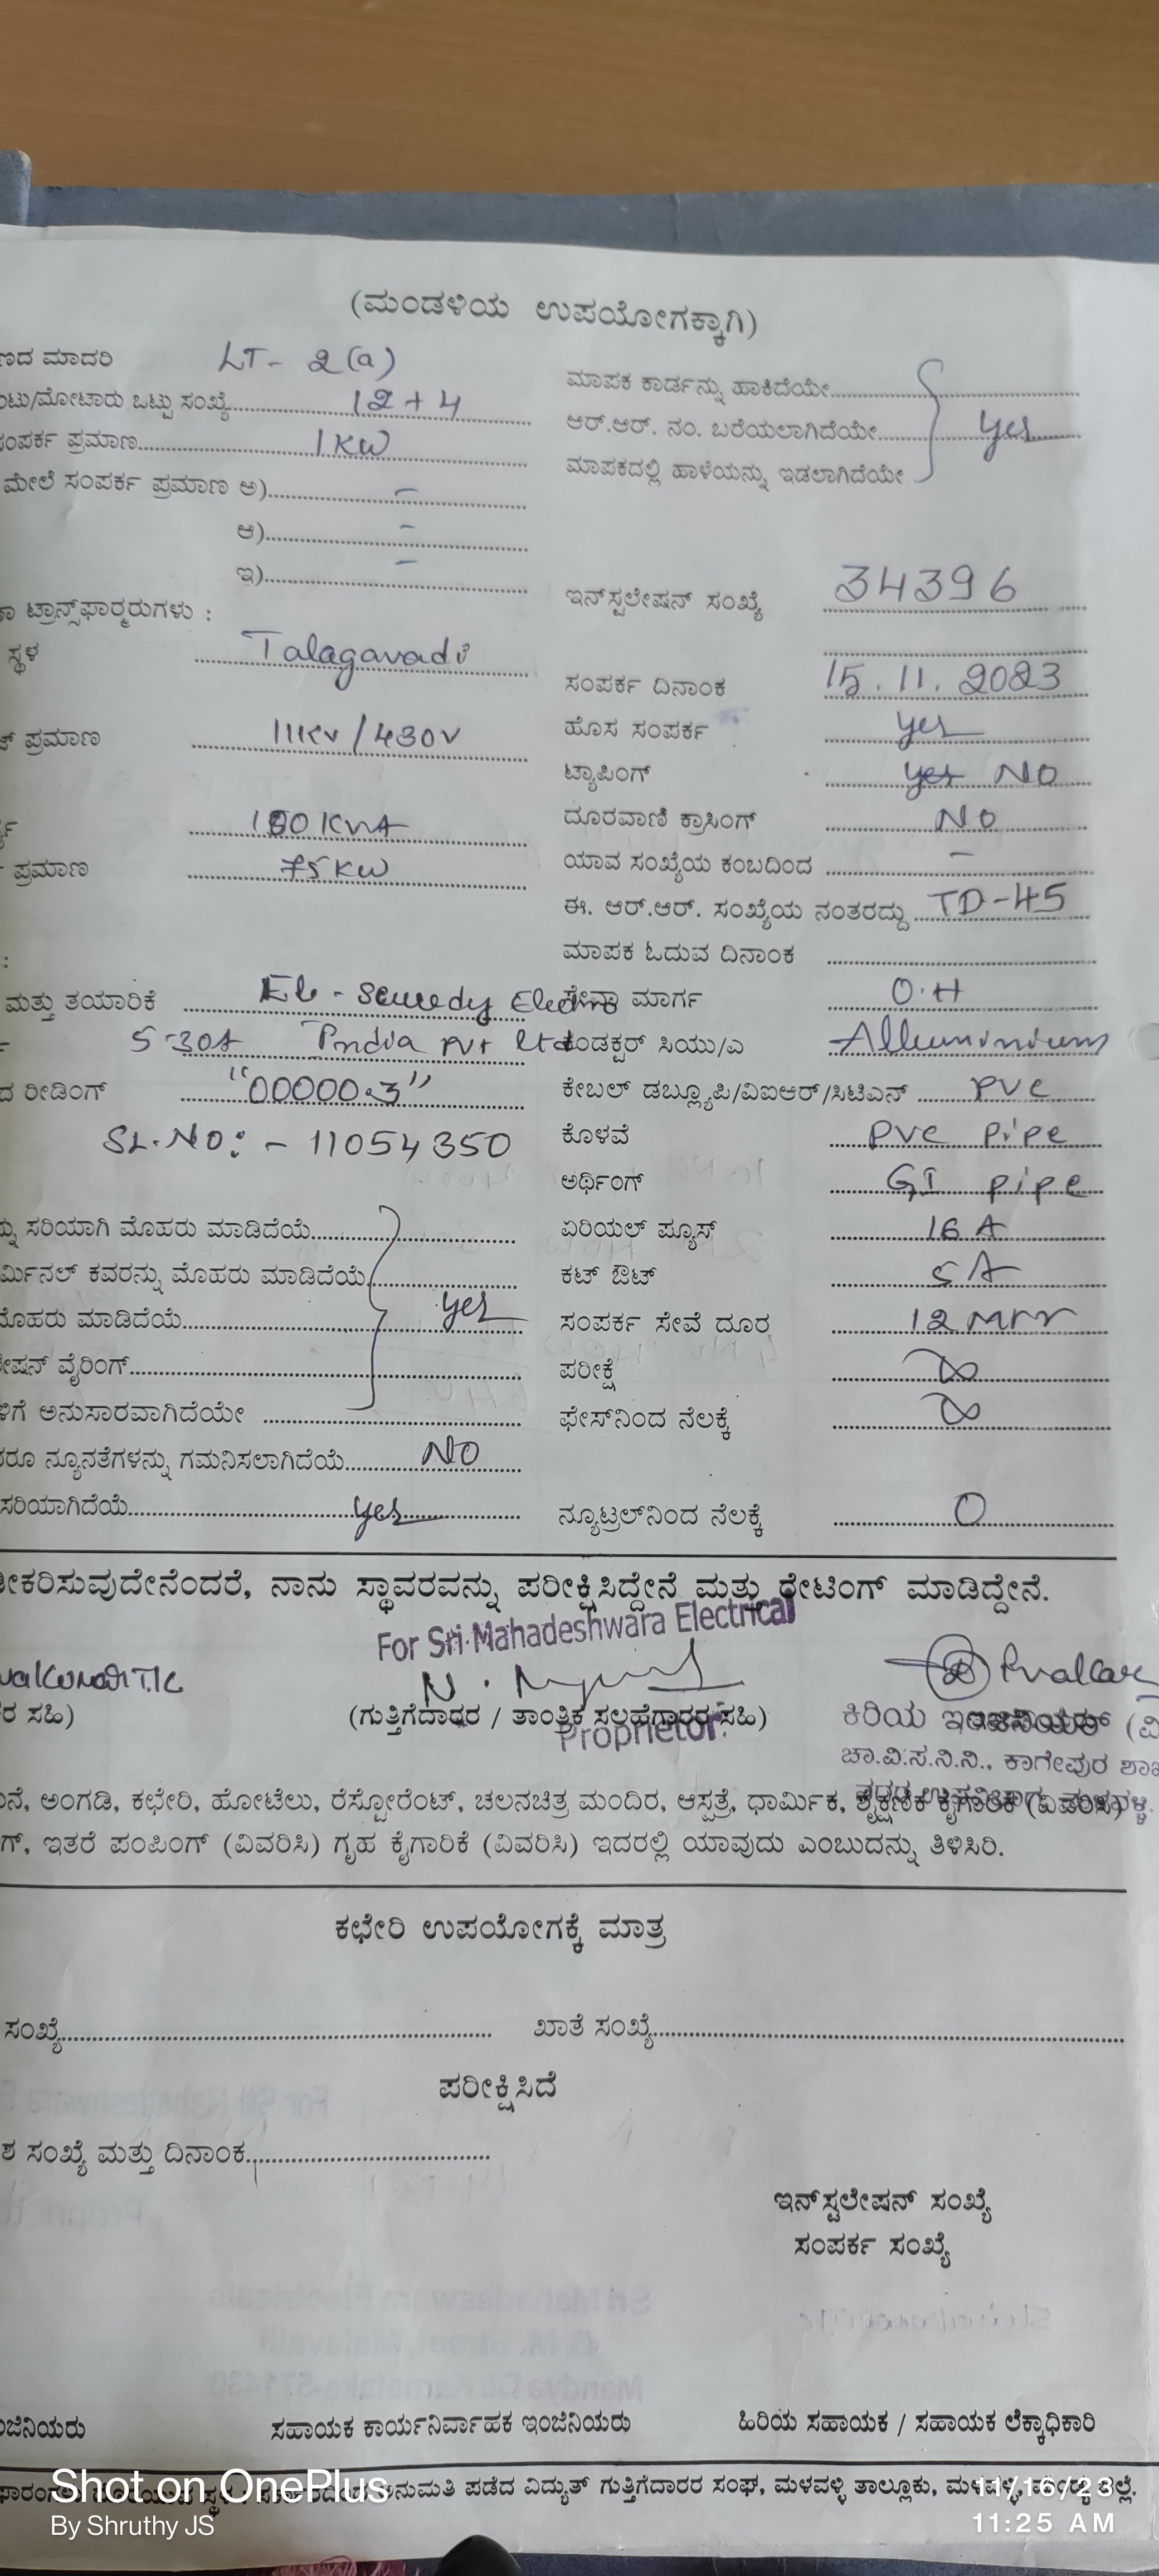 (ಮಂಡಳಿಯ ಉಪಯೋಗಕ್ಕಾಗಿ)
ಣದ ಮಾದರಿ LT- 2(a)
ಂಟು/ಮೋಟಾರು ಒಟ್ಟು ಸಂಖ್ಯೆ 12+4
ಸಂಪರ್ಕ ಪ್ರಮಾಣ 1KW
ಮೇಲೆ ಸಂಪರ್ಕ ಪ್ರಮಾಣ ಅ) -
ಆ) -
ಇ) -
ಮಾಪಕ ಕಾರ್ಡನ್ನು ಹಾಕಿದೆಯೇ
ಆರ್.ಆರ್. ನಂ. ಬರೆಯಲಾಗಿದೆಯೇ yes
ಮಾಪಕದಲ್ಲಿ ಹಾಳೆಯನ್ನು ಇಡಲಾಗಿದೆಯೇ
ಟ್ರಾನ್ಸ್‌ಫಾರ್ಮರುಗಳು :
ಸ್ಥಳ Talagavadi
ಪ್ರಮಾಣ 11KV/430V
100 KVA
ಪ್ರಮಾಣ 75KW
:
ಮತ್ತು ತಯಾರಿಕೆ El-
5-30A India Pvt Ltd
ದ ರೀಡಿಂಗ್ "00000.3"
SL.NO: - 11054350
ಸರಿಯಾಗಿ ಮೊಹರು ಮಾಡಿದೆಯೆ
ರ್ಮಿನಲ್ ಕವರನ್ನು ಮೊಹರು ಮಾಡಿದೆಯೆ
ಮೊಹರು ಮಾಡಿದೆಯೆ yes
ೇಷನ್ ವೈರಿಂಗ್
ಳಿಗೆ ಅನುಸಾರವಾಗಿದೆಯೇ
ರೂ ನ್ಯೂನತೆಗಳನ್ನು ಗಮನಿಸಲಾಗಿದೆಯೆ NO
ಸರಿಯಾಗಿದೆಯೆ yes
ಇನ್‌ಸ್ಟಲೇಷನ್ ಸಂಖ್ಯೆ 34396
ಸಂಪರ್ಕ ದಿನಾಂಕ 15.11.2023
ಹೊಸ ಸಂಪರ್ಕ yes
ಟ್ಯಾಪಿಂಗ್ yes NO
ದೂರವಾಣಿ ಕ್ರಾಸಿಂಗ್ NO
ಯಾವ ಸಂಖ್ಯೆಯ ಕಂಬದಿಂದ -
ಈ. ಆರ್.ಆರ್. ಸಂಖ್ಯೆಯ ನಂತರದ್ದು TD-45
ಮಾಪಕ ಓದುವ ದಿನಾಂಕ
ಸೇವಾ ಮಾರ್ಗ O.H
ಕಂಡಕ್ಟರ್ ಸಿಯು/ಎ Allumindum
ಕೇಬಲ್ ಡಬ್ಲ್ಯೂಪಿ/ವಿಐಆರ್/ಸಿಟಿಎನ್ PVC
ಕೊಳವೆ PVC Pipe
ಅರ್ಥಿಂಗ್ GI pipe
ಏರಿಯಲ್ ಪ್ಯೂಸ್ 16 A
ಕಟ್ ಔಟ್ 5A
ಸಂಪರ್ಕ ಸೇವೆ ದೂರ 12
ಪರೀಕ್ಷೆ ∞
ಫೇಸ್‌ನಿಂದ ನೆಲಕ್ಕೆ ∞
ನ್ಯೂಟ್ರಲ್‌ನಿಂದ ನೆಲಕ್ಕೆ 0
ೀಕರಿಸುವುದೇನೆಂದರೆ, ನಾನು ಸ್ಥಾವರವನ್ನು ಪರೀಕ್ಷಿಸಿದ್ದೇನೆ ಮತ್ತು ರೇಟಿಂಗ್ ಮಾಡಿದ್ದೇನೆ.
For Sri Mahadeshwara Electrical
ರ ಸಹಿ) (ಗುತ್ತಿಗೆದಾರರ / ತಾಂತ್ರಿಕ ಸಲಹೆಗಾರರ ಸಹಿ) ಕಿರಿಯ
Proprietor.
ಚಾ.ವಿ.ಸ.ನಿ.ನಿ., ಕಾಗೇಪುರ ಶಾಖ
ನೆ, ಅಂಗಡಿ, ಕಛೇರಿ, ಹೋಟೆಲು, ರೆಸ್ಟೋರೆಂಟ್, ಚಲನಚಿತ್ರ ಮಂದಿರ, ಆಸ್ಪತ್ರೆ, ಧಾರ್ಮಿಕ, ಶೈಕ್ಷಣಿಕ ಕೈಗಾರಿಕೆ (ವಿವರಿಸಿ)
ಗ್, ಇತರೆ ಪಂಪಿಂಗ್ (ವಿವರಿಸಿ) ಗೃಹ ಕೈಗಾರಿಕೆ (ವಿವರಿಸಿ) ಇದರಲ್ಲಿ ಯಾವುದು ಎಂಬುದನ್ನು ತಿಳಿಸಿರಿ.
ಕಛೇರಿ ಉಪಯೋಗಕ್ಕೆ ಮಾತ್ರ
ಸಂಖ್ಯೆ ಖಾತೆ ಸಂಖ್ಯೆ
ಪರೀಕ್ಷಿಸಿದೆ
ಶ ಸಂಖ್ಯೆ ಮತ್ತು ದಿನಾಂಕ
ಇನ್‌ಸ್ಟಲೇಷನ್ ಸಂಖ್ಯೆ
ಸಂಪರ್ಕ ಸಂಖ್ಯೆ
ಂಜಿನಿಯರು ಸಹಾಯಕ ಕಾರ್ಯನಿರ್ವಾಹಕ ಇಂಜಿನಿಯರು ಹಿರಿಯ ಸಹಾಯಕ / ಸಹಾಯಕ ಲೆಕ್ಕಾಧಿಕಾರಿ
ಅನುಮತಿ ಪಡೆದ ವಿದ್ಯುತ್ ಗುತ್ತಿಗೆದಾರರ ಸಂಘ, ಮಳವಳ್ಳಿ ತಾಲ್ಲೂಕು, ಮಳವಳ್ಳಿ,
Shot on OnePlus
By Shruthy JS
11/16/23
11:25 AM